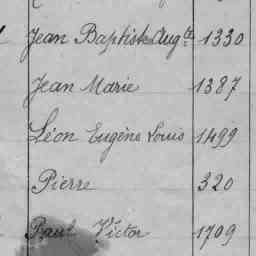 Jean Baptiste Aug.te 1330
Jean Marie 1387
Léon Eugène Louis 1499
Pierre 320
Paul Victor 1709